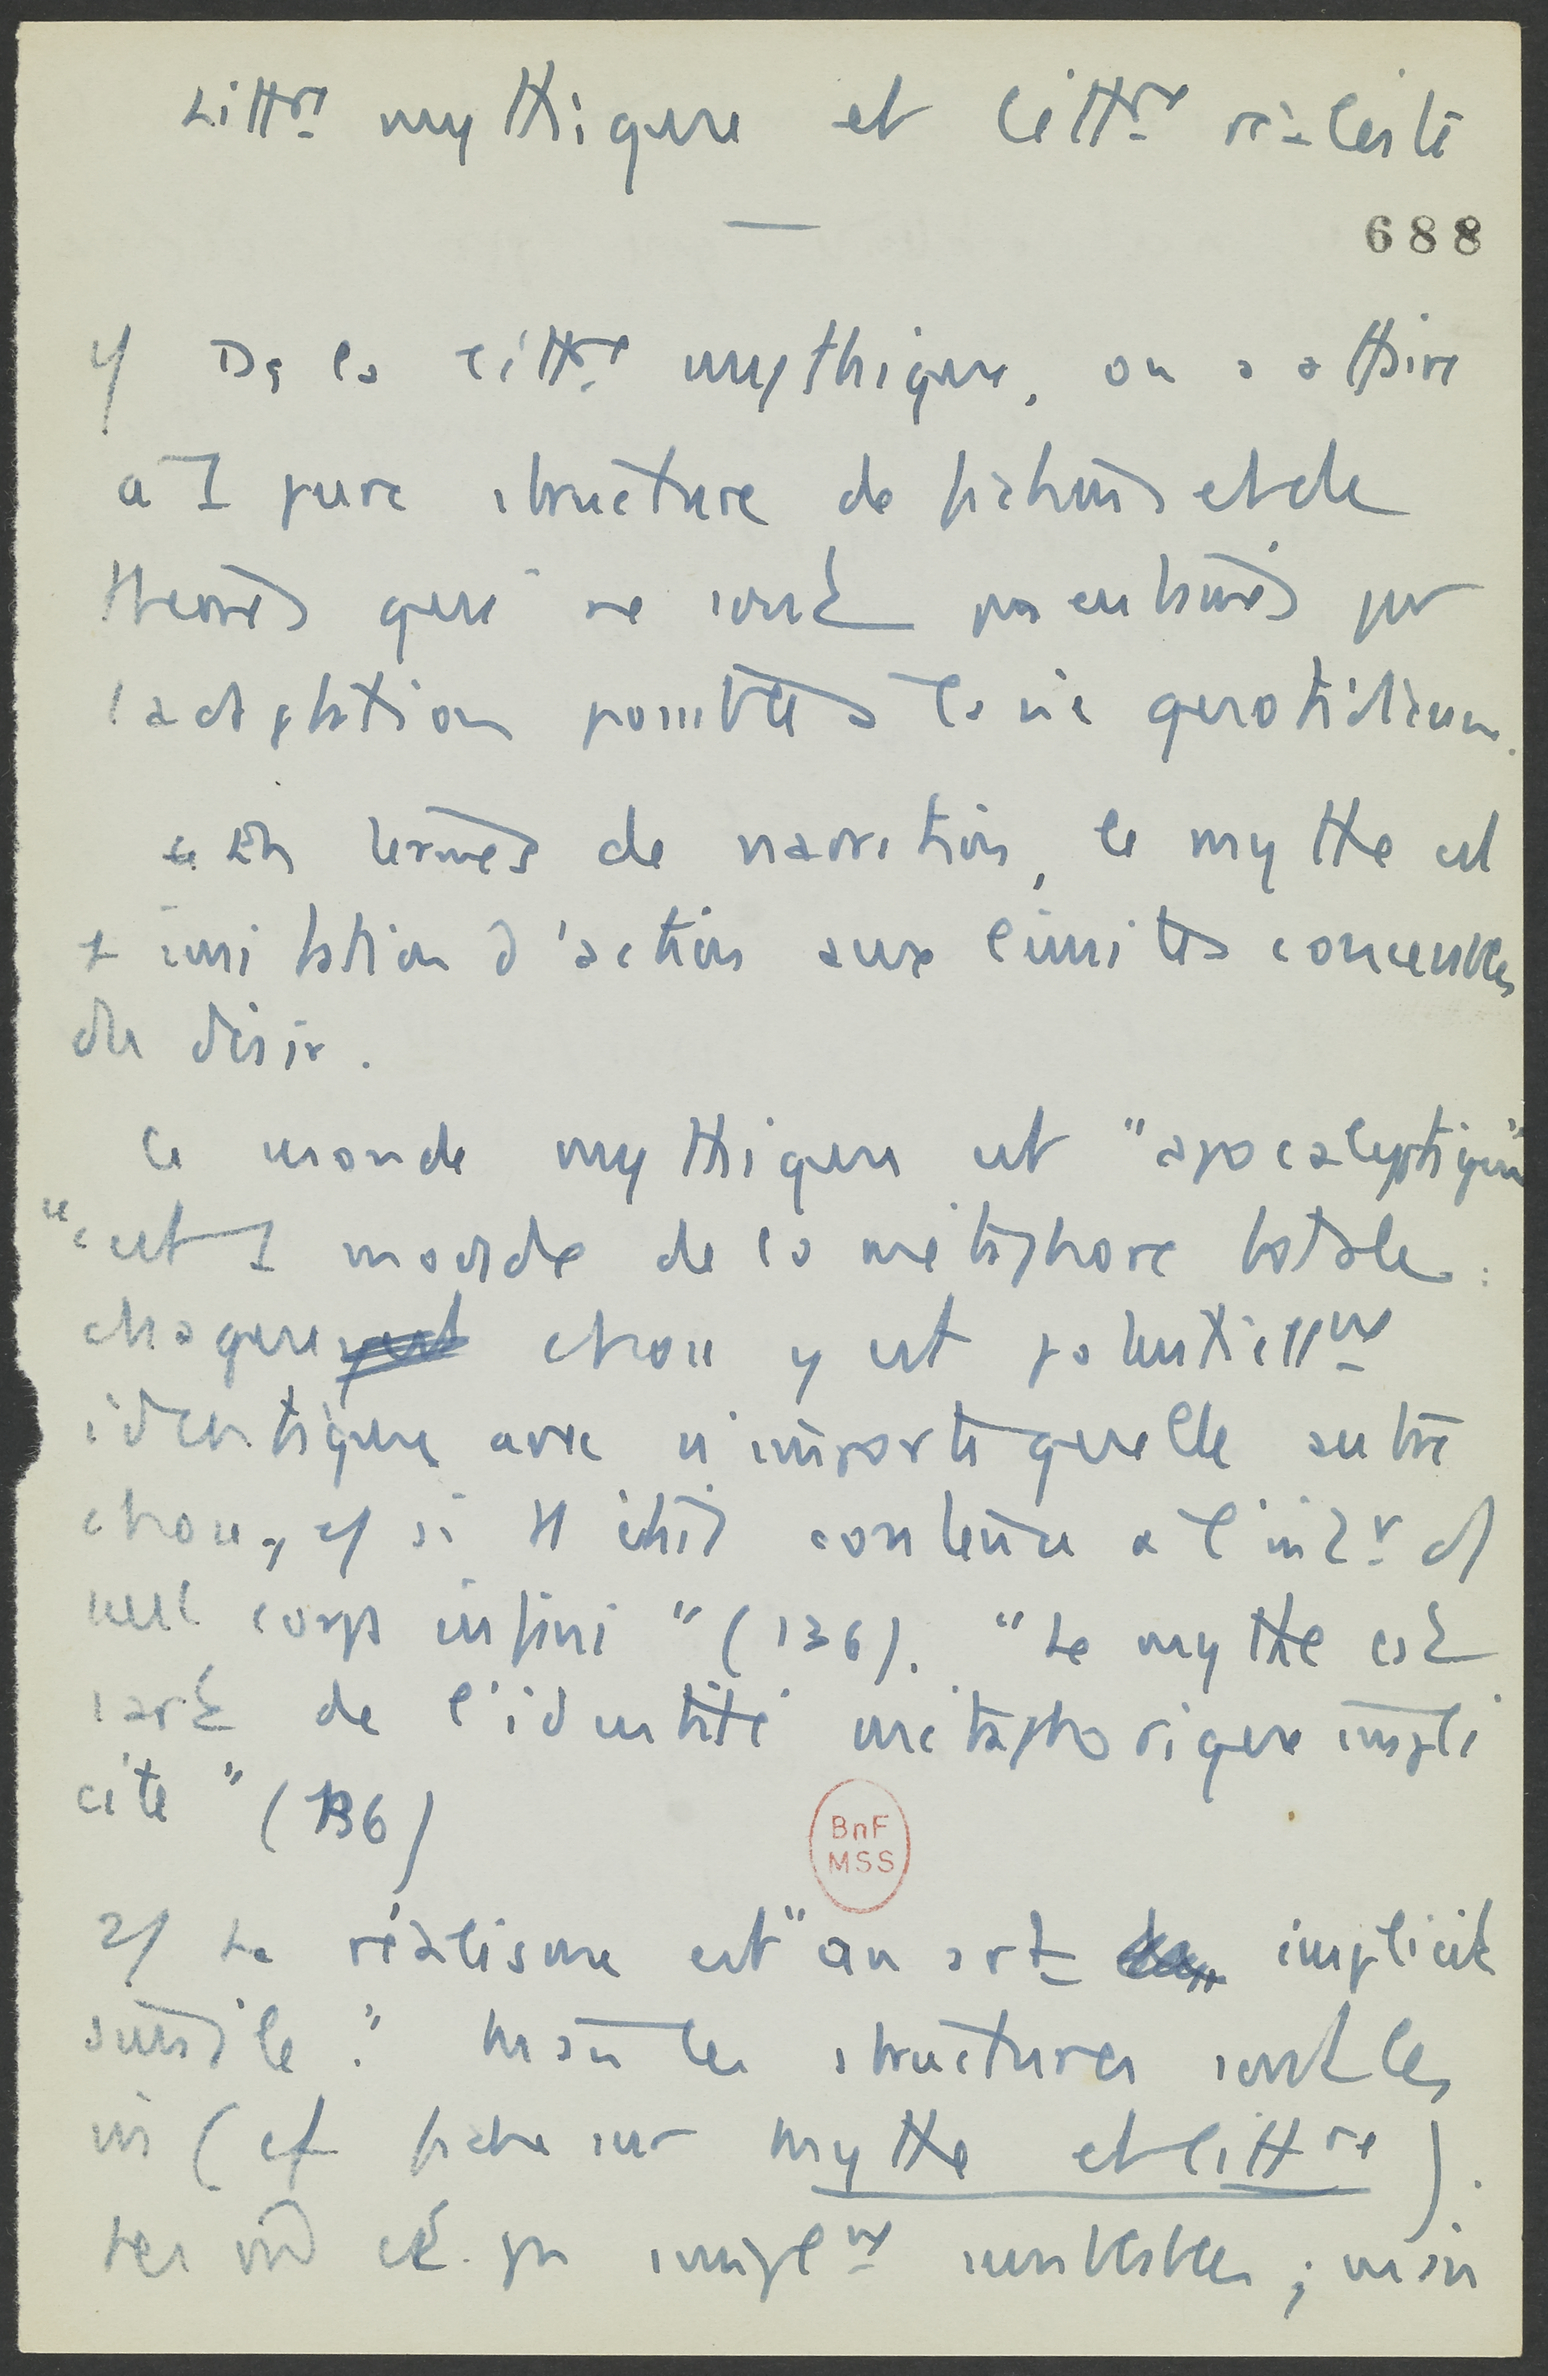 Littre mythique et littre réaliste
688
1/ Ds la littre mythique, on a affaire
à 1 pure structure de fictions et de
thèmes qui ne sont pas entamés par
l'adaptation possible à la vie quotidienne.
En termes de narration, le mythe est
1 imitation d'action aux limites concevables
du désir.
Le monde mythique est "apocalyptique"
"c'est 1 monde de la métaphore totale :
chaque chose y est potentiellmt
identique avec n'importe quelle autre
chose, c/ si tt était contenu à l'intr d/
seul corps infini" (136). "Le mythe est
l'art de l'identité métaphorique impli
cite" (136)
2/ Le réalisme est "an art implicit
simile." Mais les structures sont les
m (cf fiche sur mythe et littre).
pas simplemt semblables ; mais